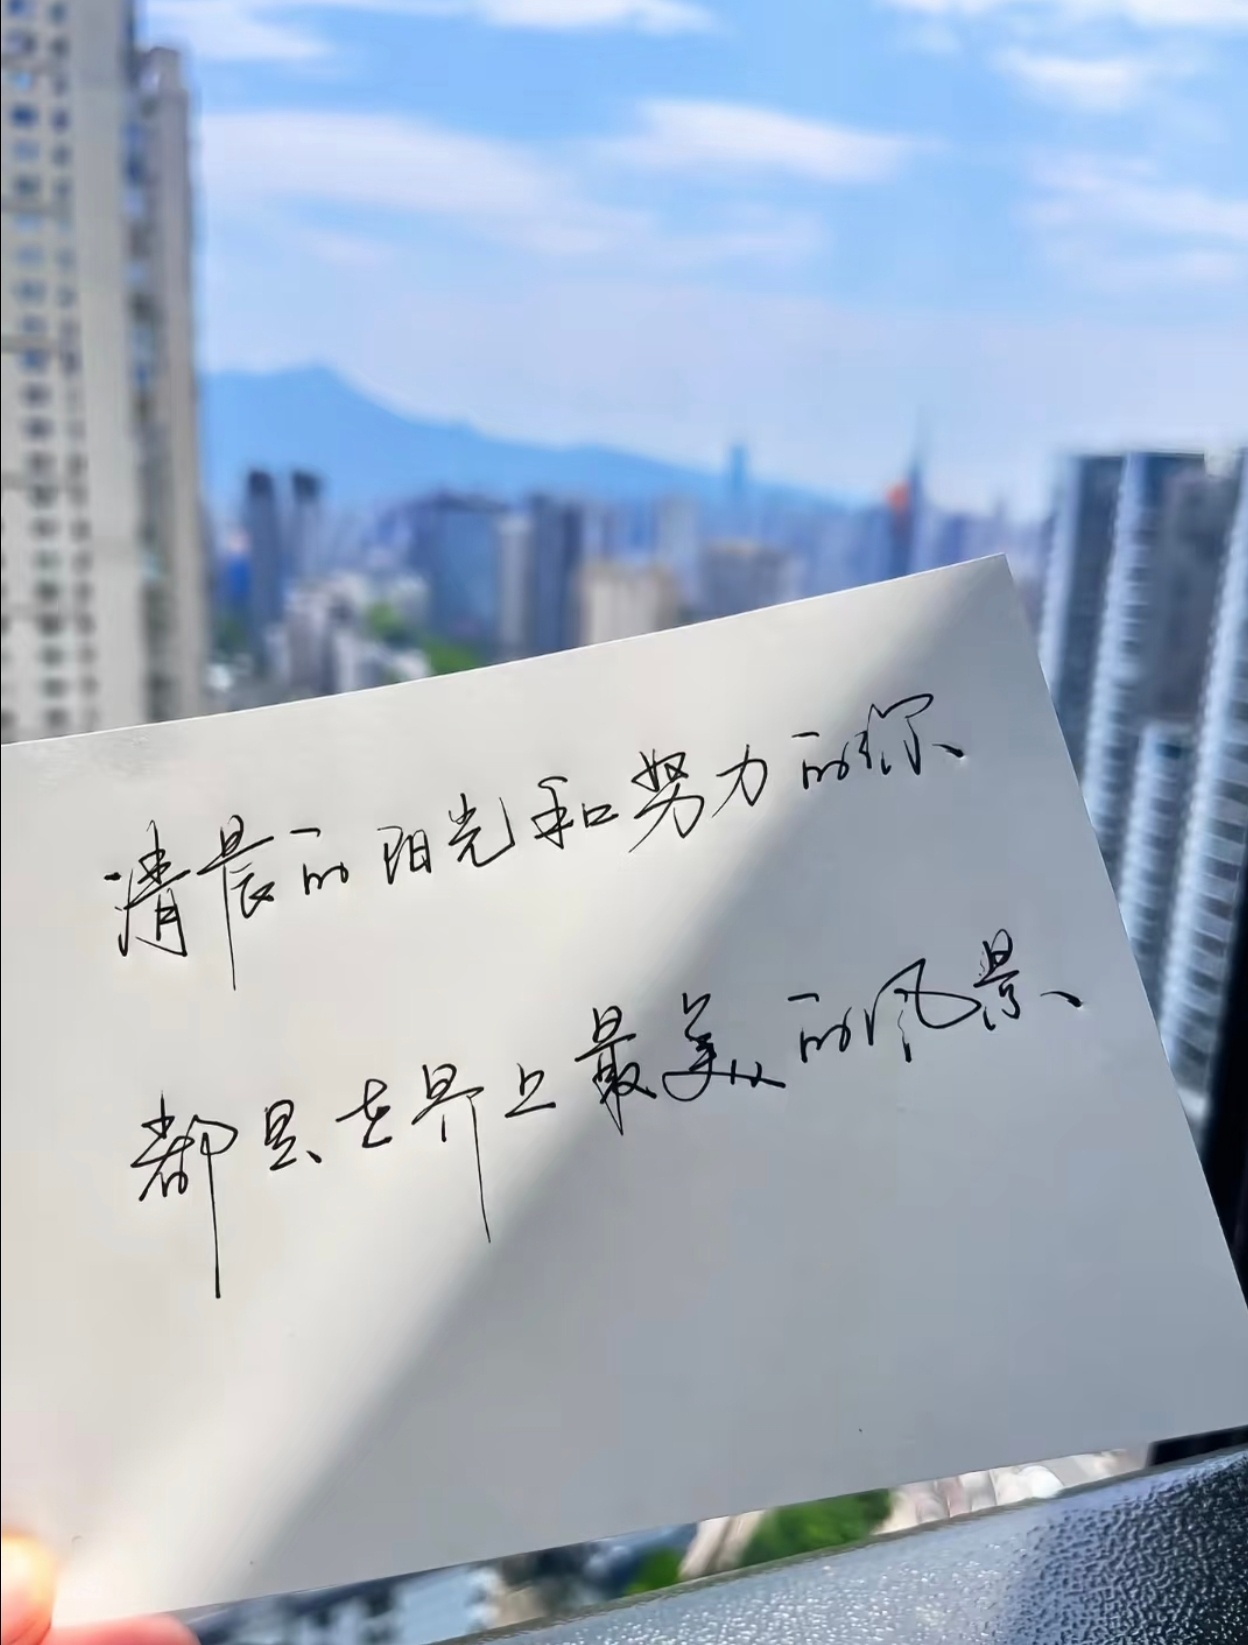 清晨的阳光和努力的你
都是世界上最美的风景